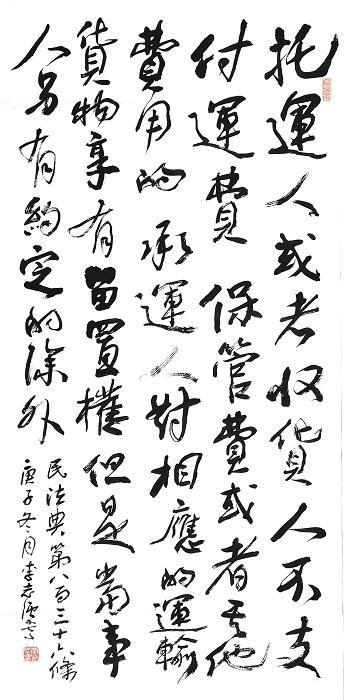 托運人或者收貨人不支
付運費 保管費或者其他
費用的 承運人對相應的運輸
貨物享有留置權 但是當事
人另有約定的除外
民法典第八百三十六條
庚子冬月李志強書